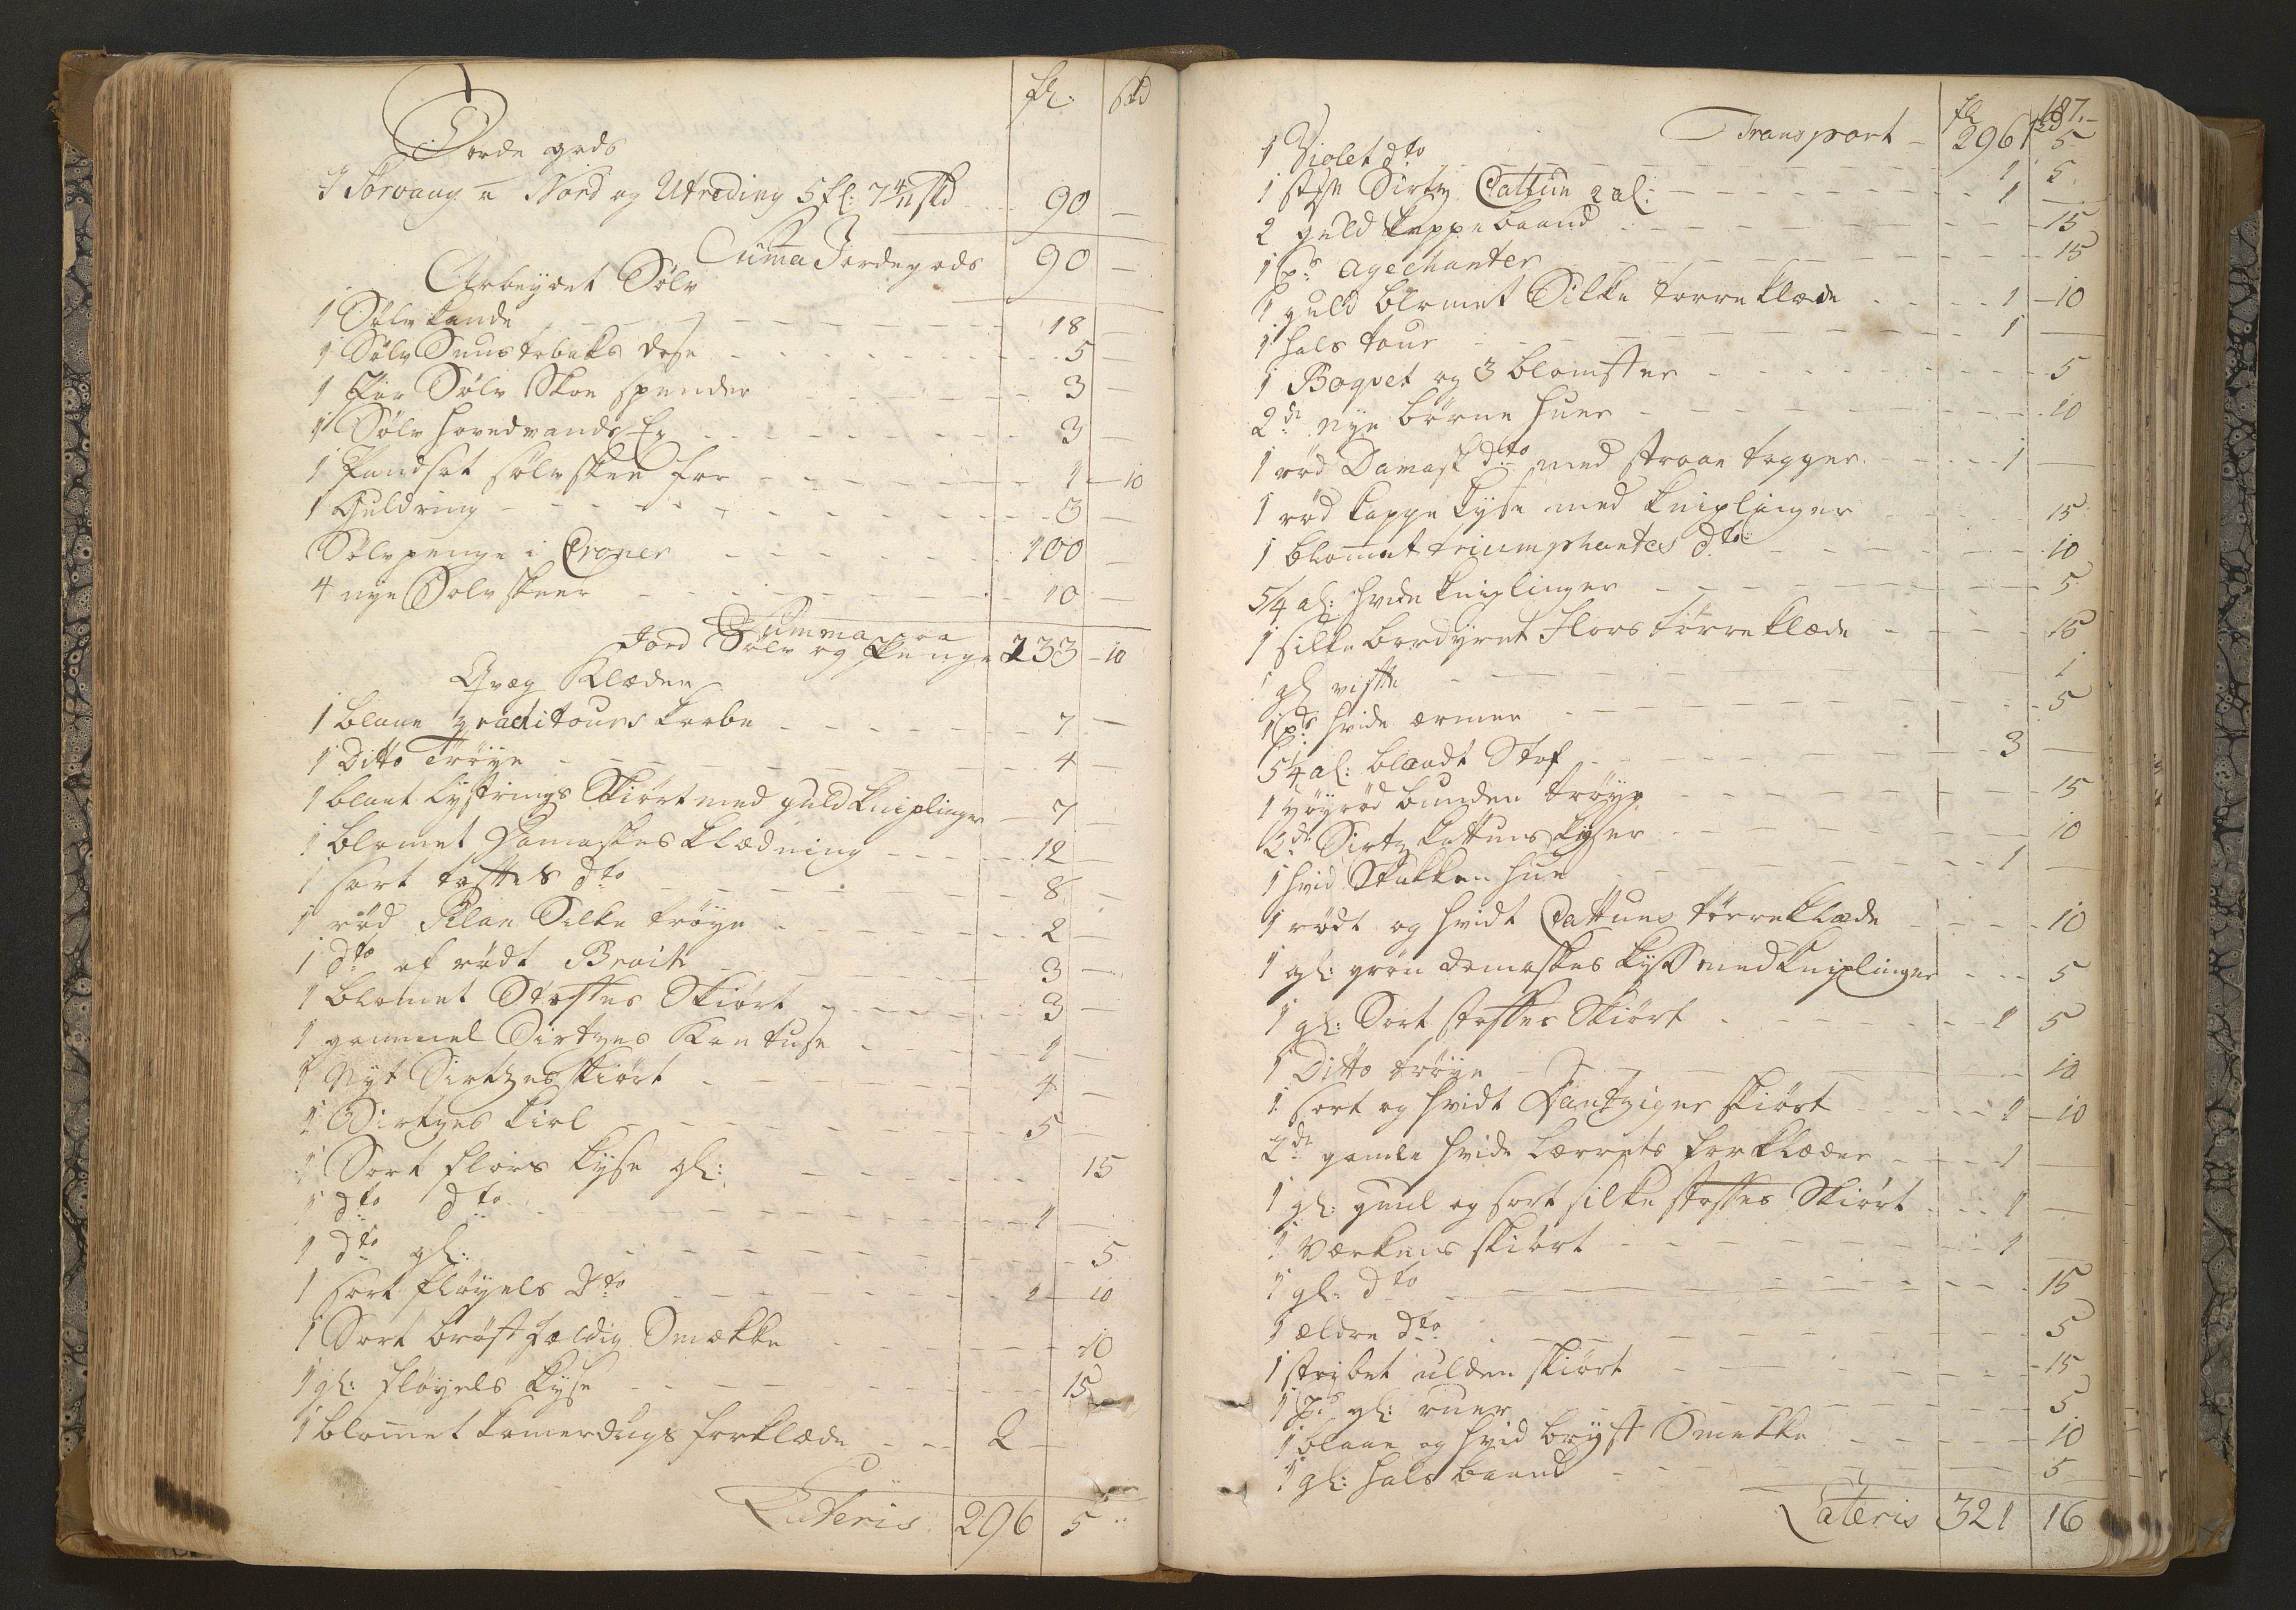 fl: skd
Jorde gods
I Sørvaag a Nord og Utreding 5 fl: 7 4/11 skd 90 —
Suma Jordegods 90 —
Arbeydet Sølv
1 Sølv kande 18 —
1 Sølv Snustobaks dose 5 —
1 Par Sølv Skoe spender 3 —
1 Sølv hovedvands Eg 3 —
1 Pandsat sølvskee for 1 — 10
1 Guldring 3 —
Sølvpenge i Croner 100 —
4 nye Sølv skeer 10 —
Summa paa
Jord Sølv og Penge 233 — 10
Klæder
1 blaae graditours kaabe 7 —
1 Ditto Trøye 4 —
1 blaat lystrings Skiørt med guld kniplinger 7 —
1 blomet Damaskes klædning 12 —
1 sort tofftes dto 8 —
1 rød Silke trøye 2 —
1 dto af rødt 3 —
1 blomet Stoffes Skiørt 3 —
1 gammel Sirtzes Kantuse 1 —
1 Nyt Sirtzes skiørt 4 —
1 Sirtzes kiol 5 —
1 Sort flors kyse gl: 15
1 dto dto 1 —
1 dto gl: 5
1 sort fløyels Dto 1 — 10
1 Sort brøst Smække 10
1 gl: fløyels kyse 15
1 blomet kamerdugs forklæde 2 —
Lateris 296 5
187.
fl skd
Transport 296 5
1 Violet dto 1 5
1 Sirtz Cattun 2 al: 1 —
2 guld kappebaand 15
1 ps agechanter 15
1 guld blomet Silke tørreklæde 1 — 10
1 hals tour 1 —
1 Boqvet og 3 blomster 5
2de nye børne huer 10
1 rød Damask dto med straae tagger 1 —
1 rød kappe kyse med kniplinger 15
1 blommet triumphantes dto 10
5/4 al: hvide kniplinger 5
1 silke bordyret Flors tørreklæde 15
1 gl 1
1 ps hvide ærmer 5
5 1/4 al: blandt Stof 3 —
1 høyrød bunden trøye 15
2de Sirtz kattuns kyser 10
1 hvid Stukken hue 1 —
1 rødt og hvidt Cattuns tørreklæde 10
1 gl: grøn damaskes kyse med kniplinger 5
1 gl: Sort stoffes Skiørt 1 5
1 Ditto trøye 10
1 sort og hvidt Dantziger skiørt 1 — 10
2de gamle hvide Lærrets forklæder 1 —
1 gl: guul og sort silke stoffes Skiørt 1 —
1 Verkens skiørt 1
1 gl: dto 15
1 ældre dto 5
1 strybet ulden skiørt 15
1 ps gl: 5
1 blaae og hvid bryst Smække 10
1 gl: hals baand 5
Lateris 321 16